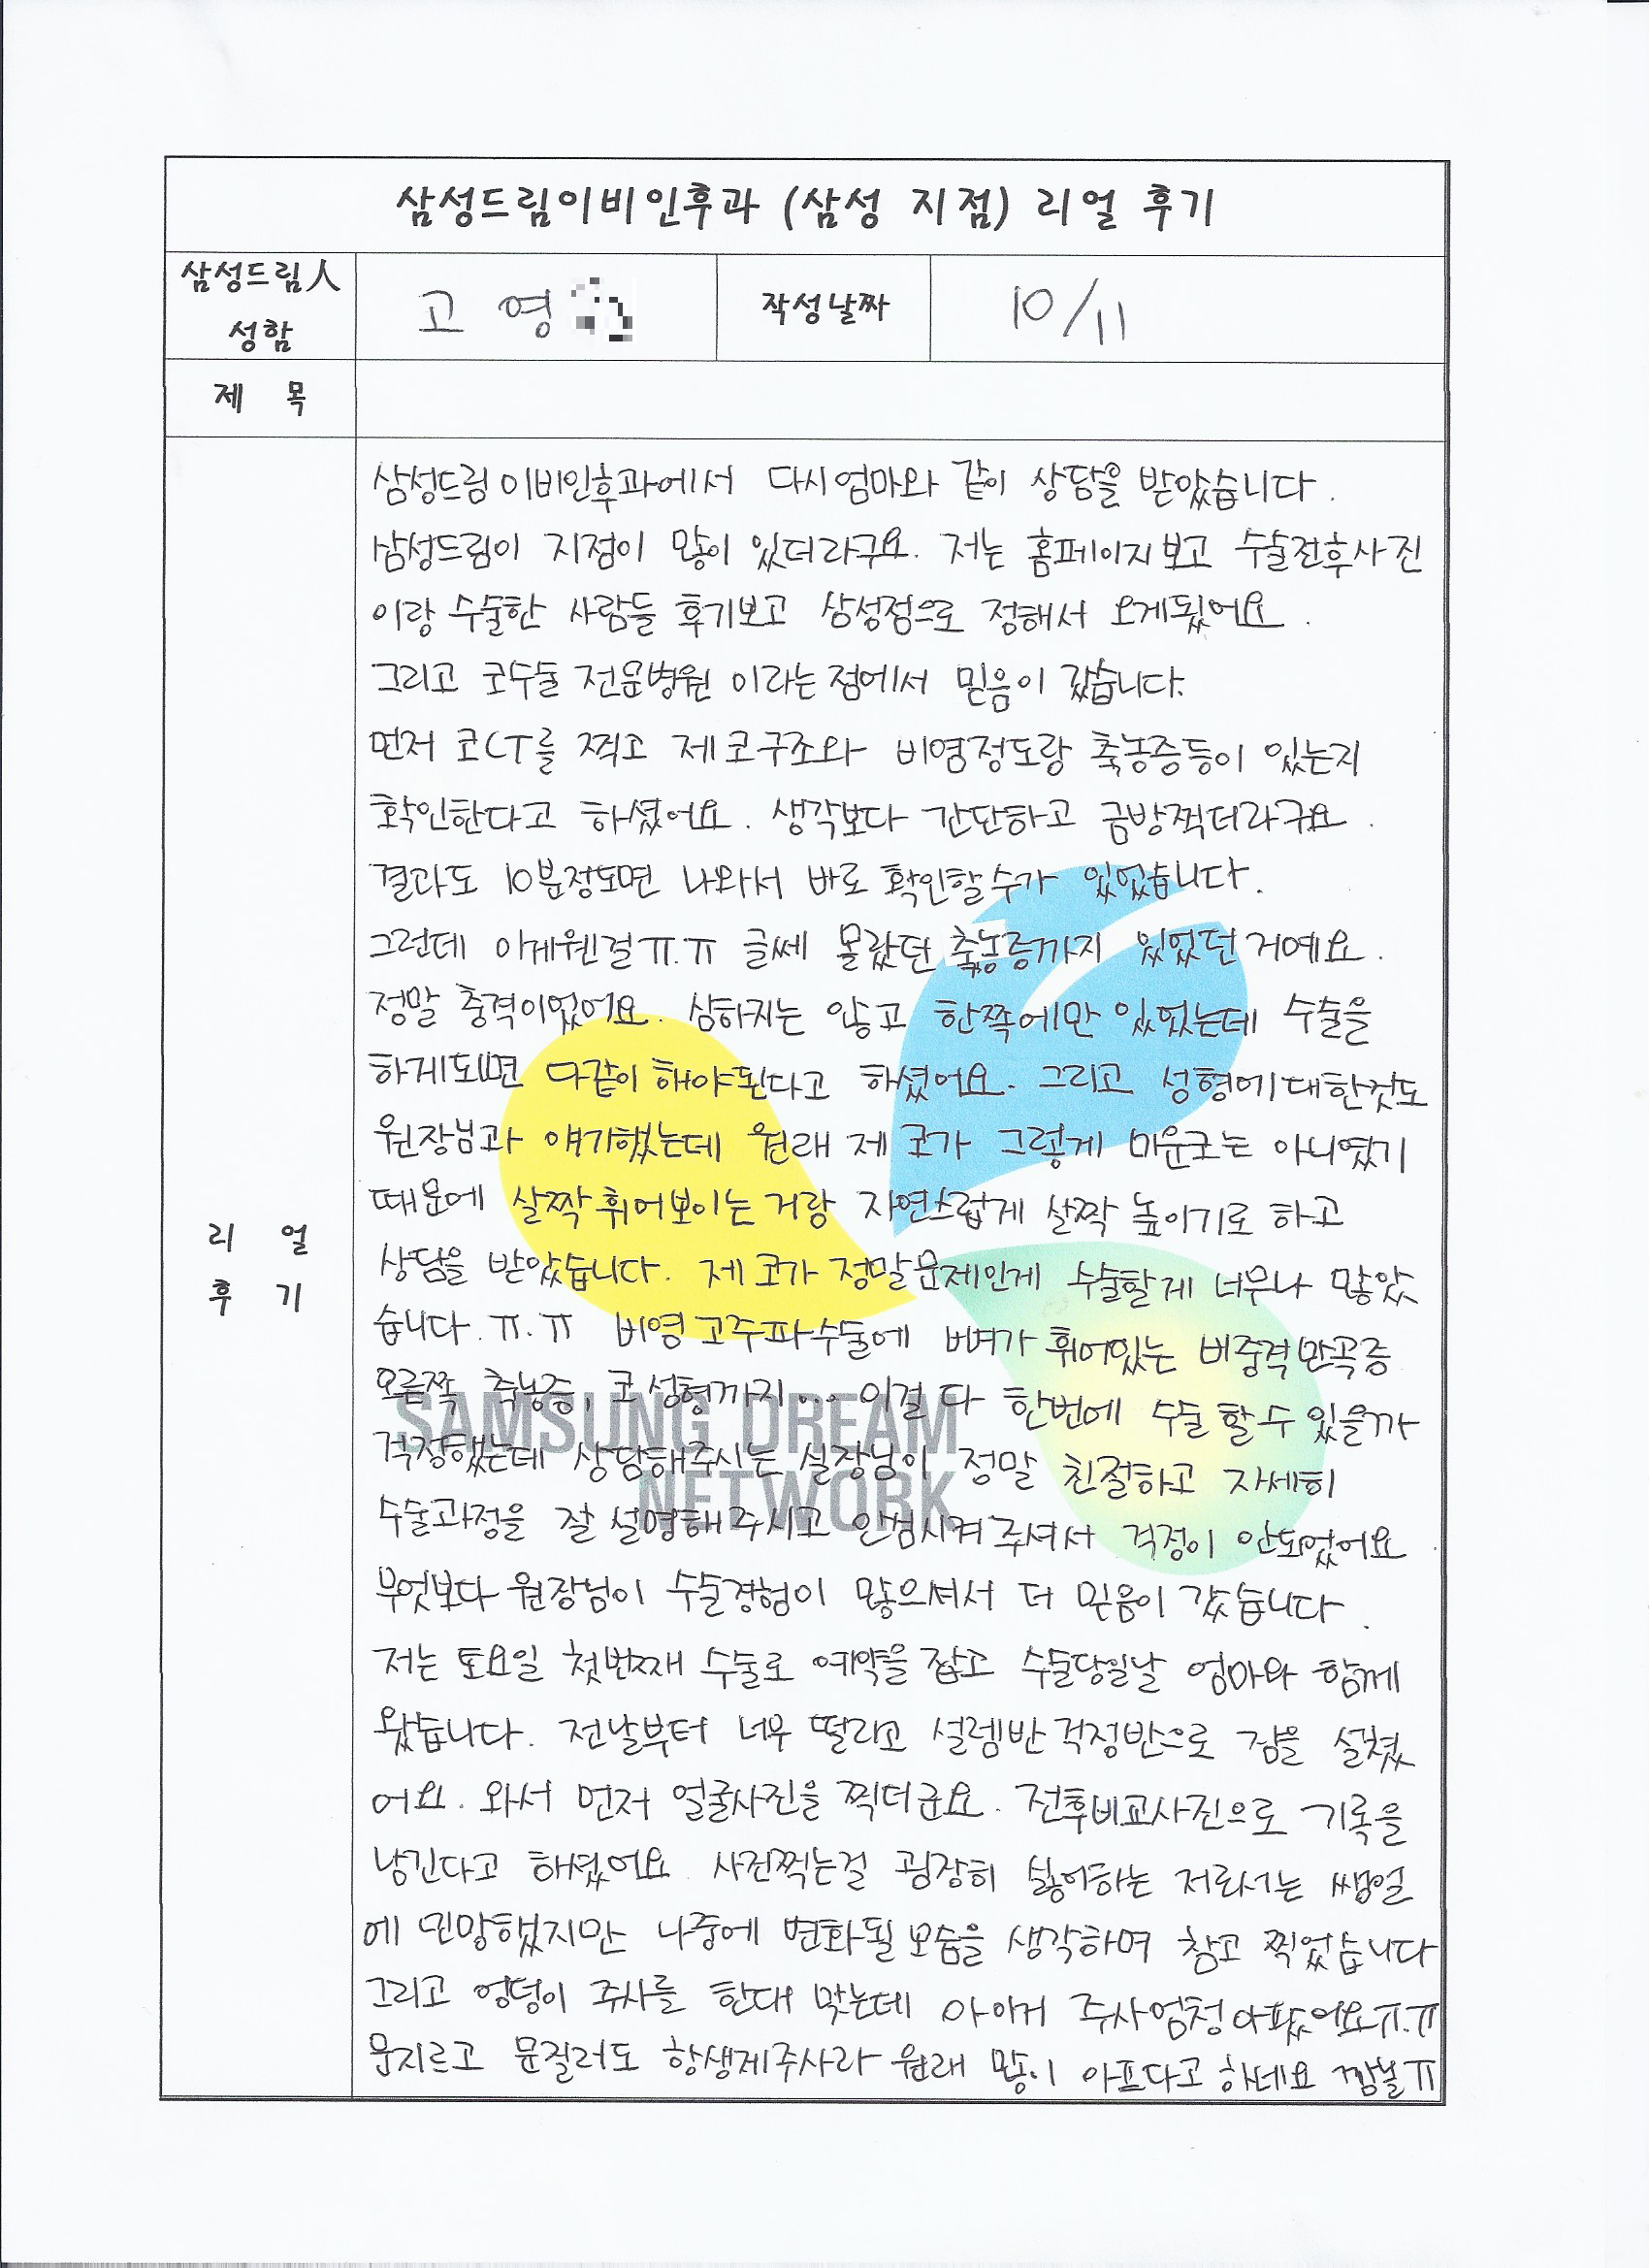 삼성드림이비인후과 (삼성 지점) 리얼 후기
삼성드림人
성함
고 영
작성날짜
10/11
제 목
리 얼
후 기
삼성드림이비인후과에서 다시엄마와 같이 상담을 받았습니다.
삼성드림이 지점이 많이 있더라구요. 저는 홈페이지보고 수술전후사진
이랑 수술한 사람들 후기보고 삼성점으로 정해서 오게됬어요.
그리고 코수술 전문병원 이라는점에서 믿음이 갔습니다.
먼저 코CT를 찍고 제코구조와 비염정도랑 축농증등이 있는지
확인한다고 하셨어요. 생각보다 간단하고 금방찍더라구요.
결과도 10분정도면 나와서 바로 확인할수가 있었습니다.
그런데 이게웬걸ㅠ.ㅠ 글쎄 몰랐던 축농증까지 있었던거예요.
정말 충격이었어요. 심하지는 않고 한쪽에만 있었는데 수술을
하게되면 다같이해야된다고 하셨어요. 그리고 성형에대한것도
원장님과 얘기했는데 원래 제 코가 그렇게 미운코는 아니였기
때문에 살짝휘어보이는거랑 자연스럽게 살짝 높이기로 하고
상담을 받았습니다. 제코가 정말문제인게 수술할게 너무나 많았
습니다.ㅠ.ㅠ 비염고주파수술에 뼈가 휘어있는 비중격만곡증
오른쪽 축농증, 코성형까지... 이걸다 한번에 수술할수있을까
걱정했는데 상담해주시는 실장님이 정말 친절하고 자세히
수술과정을 잘설명해주시고 안심시켜주셔서 걱정이 안되었어요.
무엇보다 원장님이 수술경험이 많으셔서 더 믿음이 갔습니다.
저는 토요일 첫번째 수술로 예약을 잡고 수술당일날 엄마와 함께
왔습니다. 전날부터 너무 떨리고 설렘반걱정반으로 잠을 설쳤
어요. 와서 먼저 얼굴사진을 찍더군요. 전후비교사진으로 기록을
남긴다고 하셨어요. 사진찍는걸 굉장히 싫어하는 저로서는 쌩얼
에 민망했지만 나중에 변화될모습을 생각하며 참고 찍었습니다
그리고 엉덩이 주사를 한대 맞는데 아 이거 주사엄청아팠어요ㅠ.ㅠ
문지르고 문질러도 항생제주사라 원래 많이 아프다고하네요 깜놀ㅠ
SAMSUNG DREAM
NETWORK